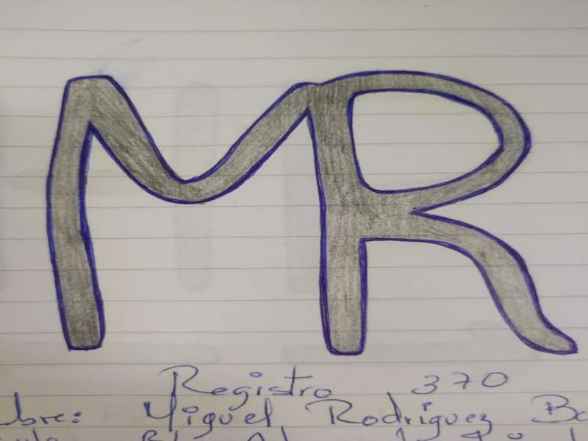 MR
Registro 370
bre: Miguel Rodríguez Ba